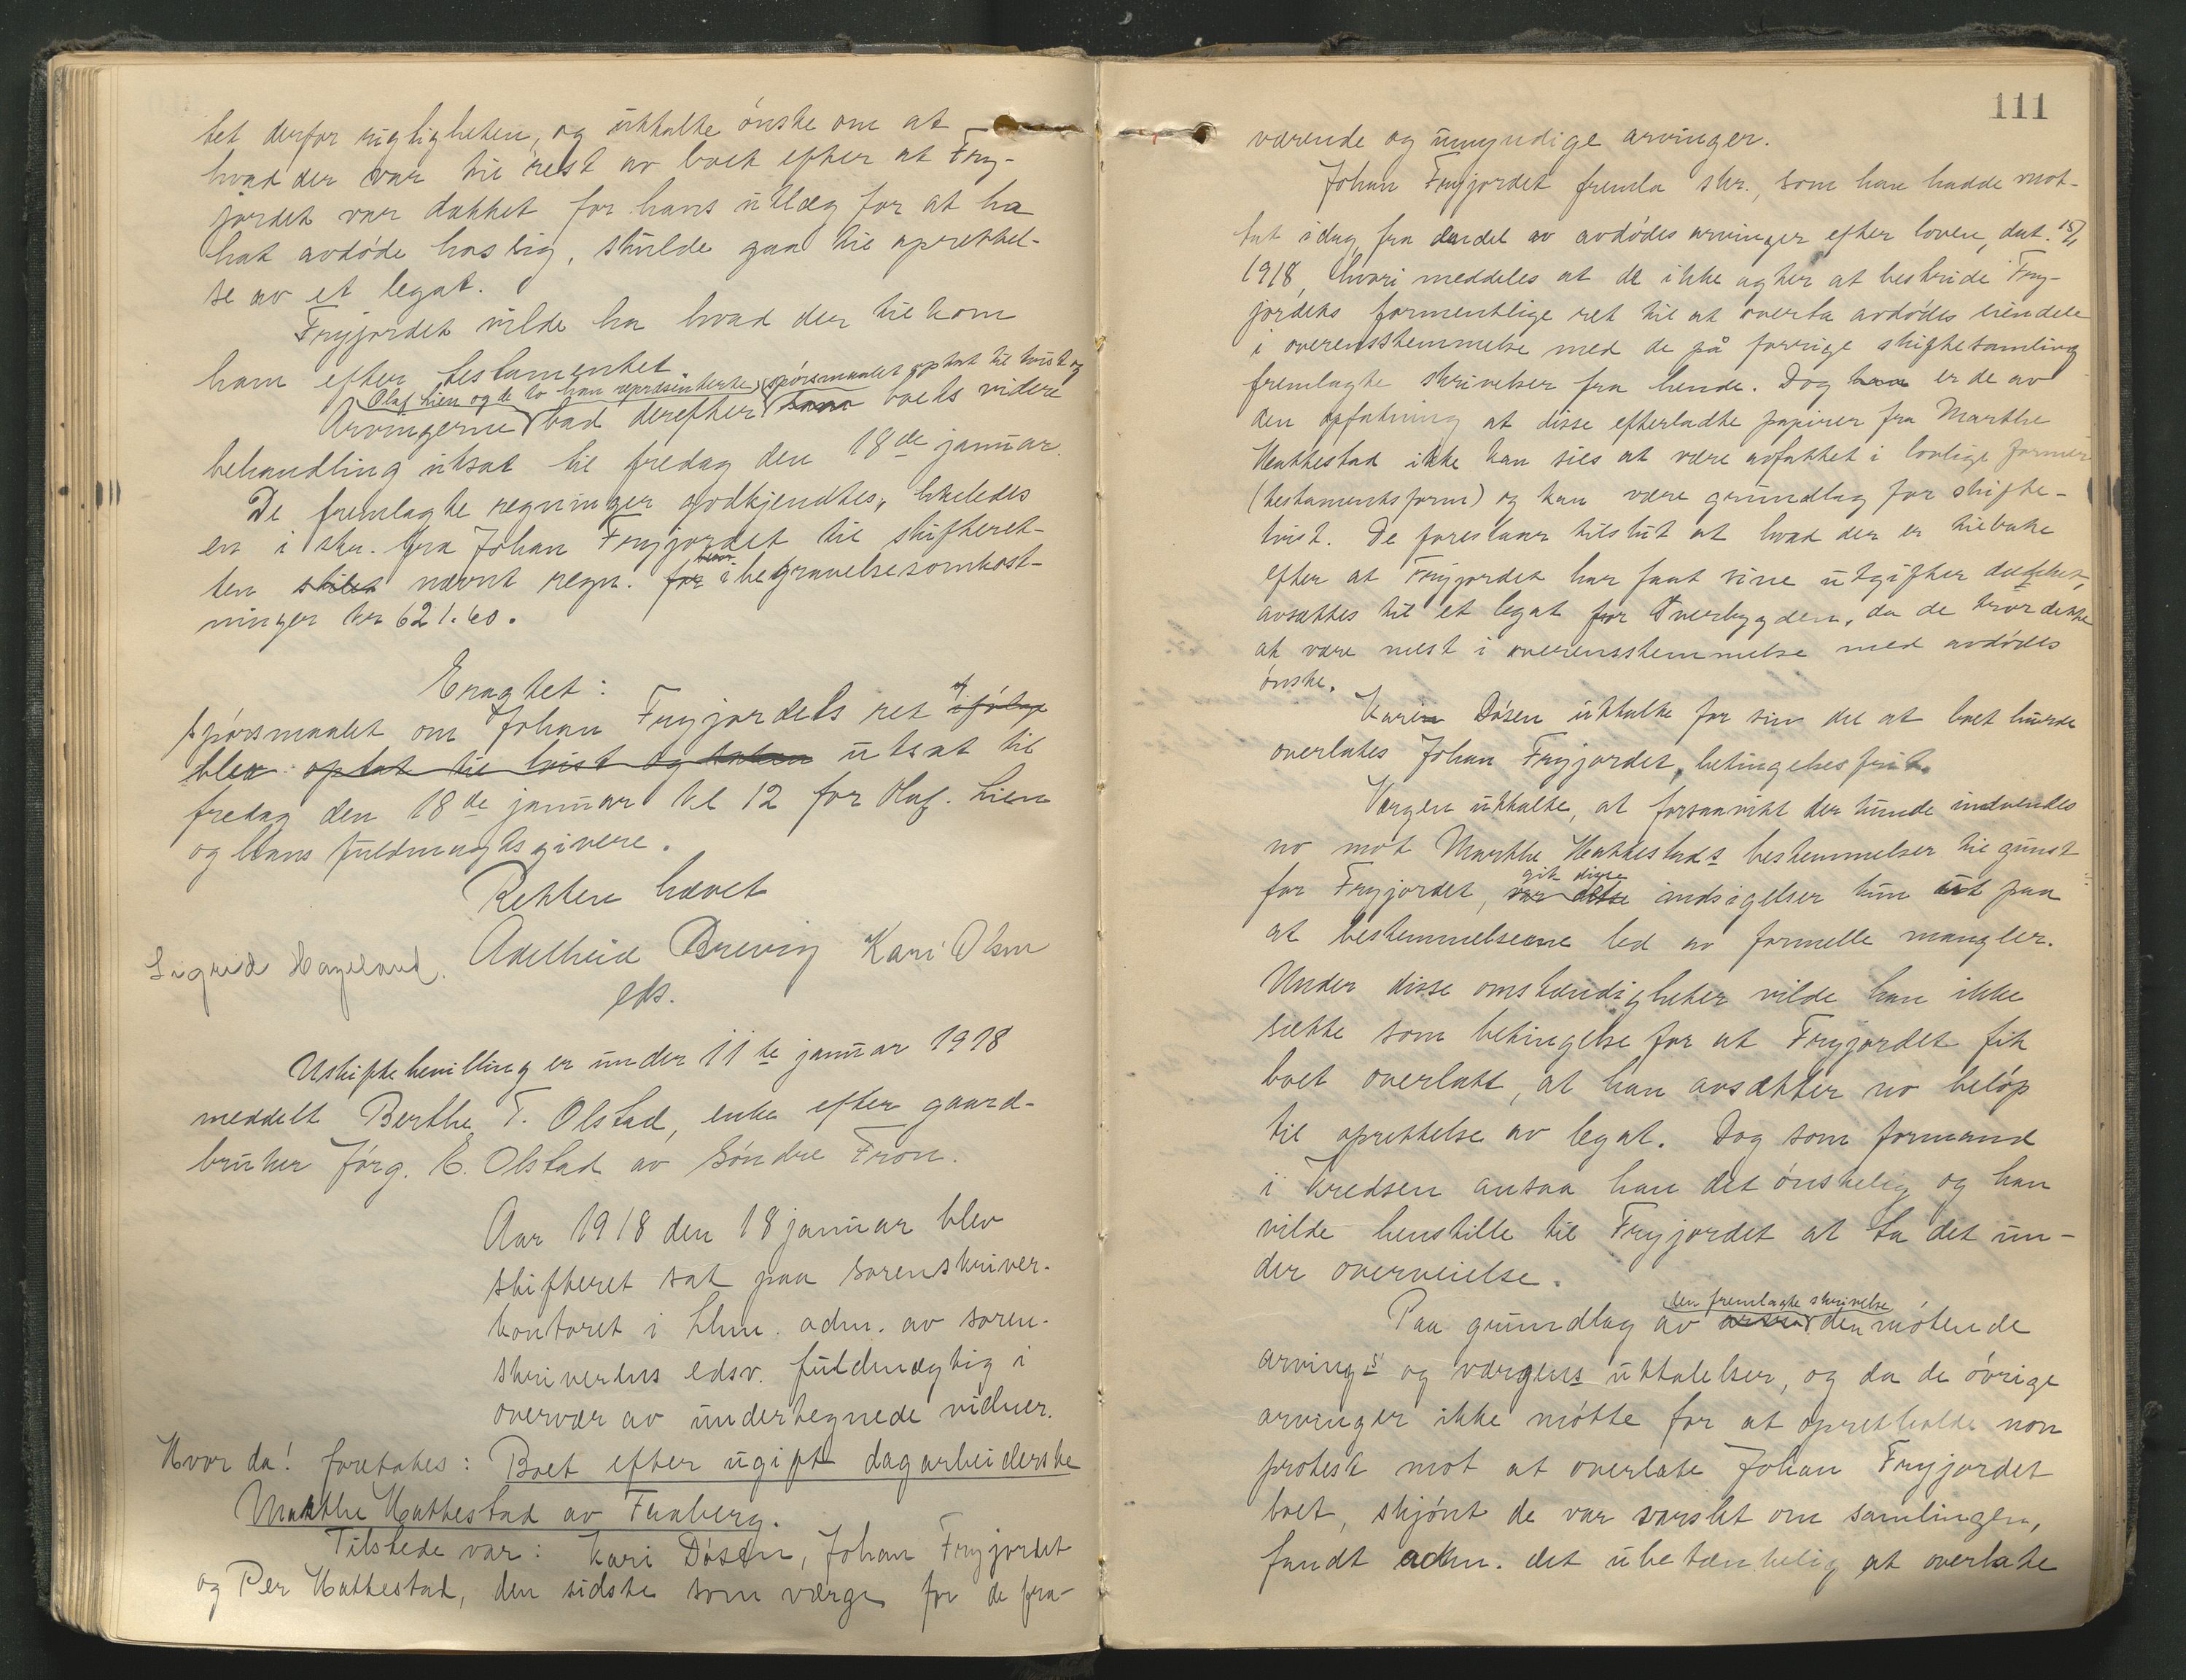 tet derfor rigtigheten, og uttalte ønske om at
hvad der var til rest av boet efter at Fry-
jordet var dækket for hans utlæg for at ha
hat avdøde hos sig, skulde gaa til oprettel-
se av et legat.
Fryjordet vilde ha hvad der tilkom
ham efter testamentet.
Olaf Lien og de to han repræsenterte spørsmaalet optat til tvist og
Arvingerne bad derefter boets videre
behandling utsat til fredag den 18de januar.
De fremlagte regninger godkjendtes, likeledes
en i skr. fra Johan Fryjordet til skifteret-
ten skilet nævnt regn. for i begravelsesomkost-
ninger kr 621.60.
Eragtet:
Spørsmaalet om Johan Fryjordets ret ifølge
blev optat til tvist og utsat til
fredag den 18de januar kl 12 for Olaf Lien
og hans fuldmagtsgivere.
Retten hævet
Sigrid Hageland. Adelheid Brevig Kari Olsen
eds.
Uskiftebevilling er under 11te januar 1918
meddelt Berthe T. Olstad, enke efter gaard-
bruker Jørg. E. Olstad av Søndre Fron.
Aar 1918 den 18 januar blev
skifteret sat paa sorenskriver-
kontoret i Lhm. adm. av soren-
skriverens edsv. fuldmægtig i
overvær av undertegnede vidner.
Hvor da! foretokes: Boet efter ugift dagarbeiderske
Marthe Hattestad av Faaberg.
Tilstede var: Kari Døsen, Johan Fryjordet
og Per Hattestad, den sidste som værge for de fra-
111
værende og umyndige arvinger.
Johan Fryjordet fremla skr., som han hadde mot-
tat idag fra endel av avdødes arvinger efter loven, dat. 15/1
1918, hvori meddeles at de ikke agter at bestride Fry-
jordets formentlige ret til at overta avdødes eiendele
i overensstemmelse med de på forrige skiftesamling
fremlagte skrivelser fra hende. Dog er de av
den opfatning at disse efterladte papirer fra Marthe
Hattestad ikke kan sies at være avfattet i lovlige former
(testamentsform) og kan være grundlag for skifte-
tvist. De foreslaar tilslut at hvad der er tilbake
efter at Fryjordet har faat sine utgifter dækket,
avsættes til et legat for Øverbygden, da de tror dette
at være mest i overensstemmelse med avdødes
ønske.
Kari Døsen uttalte for sin del at boet burde
overlates Johan Fryjordet, betingelsesfrit.
Værgen uttalte, at forsaavidt der kunde indvendes
no mot Marthe Hattestads bestemmelser til gunst
git disse
for Fryjordet, var disse indsigelser kun ut paa
at bestemmelserne led av formelle mangler.
Under disse omstændigheter vilde han ikke
sætte som betingelse for at Fryjordet fik
boet overlatt, at han avsætter no beløp
til oprettelse av legat. Dog som formand
i Kredsen ansaa han det ønskelig og han
vilde henstille til Fryjordet at ta det un-
der overveielse.
den fremlagte skrivelse
Paa grundlag av den møtende
arvings og værgens uttalelser, og da de øvrige
arvinger ikke møtte for at opretholde non
protest mot at overlate Johan Fryjordet
boet, skjønt de var varslet om samlingen,
fandt adm. det ubetænkelig at overlate